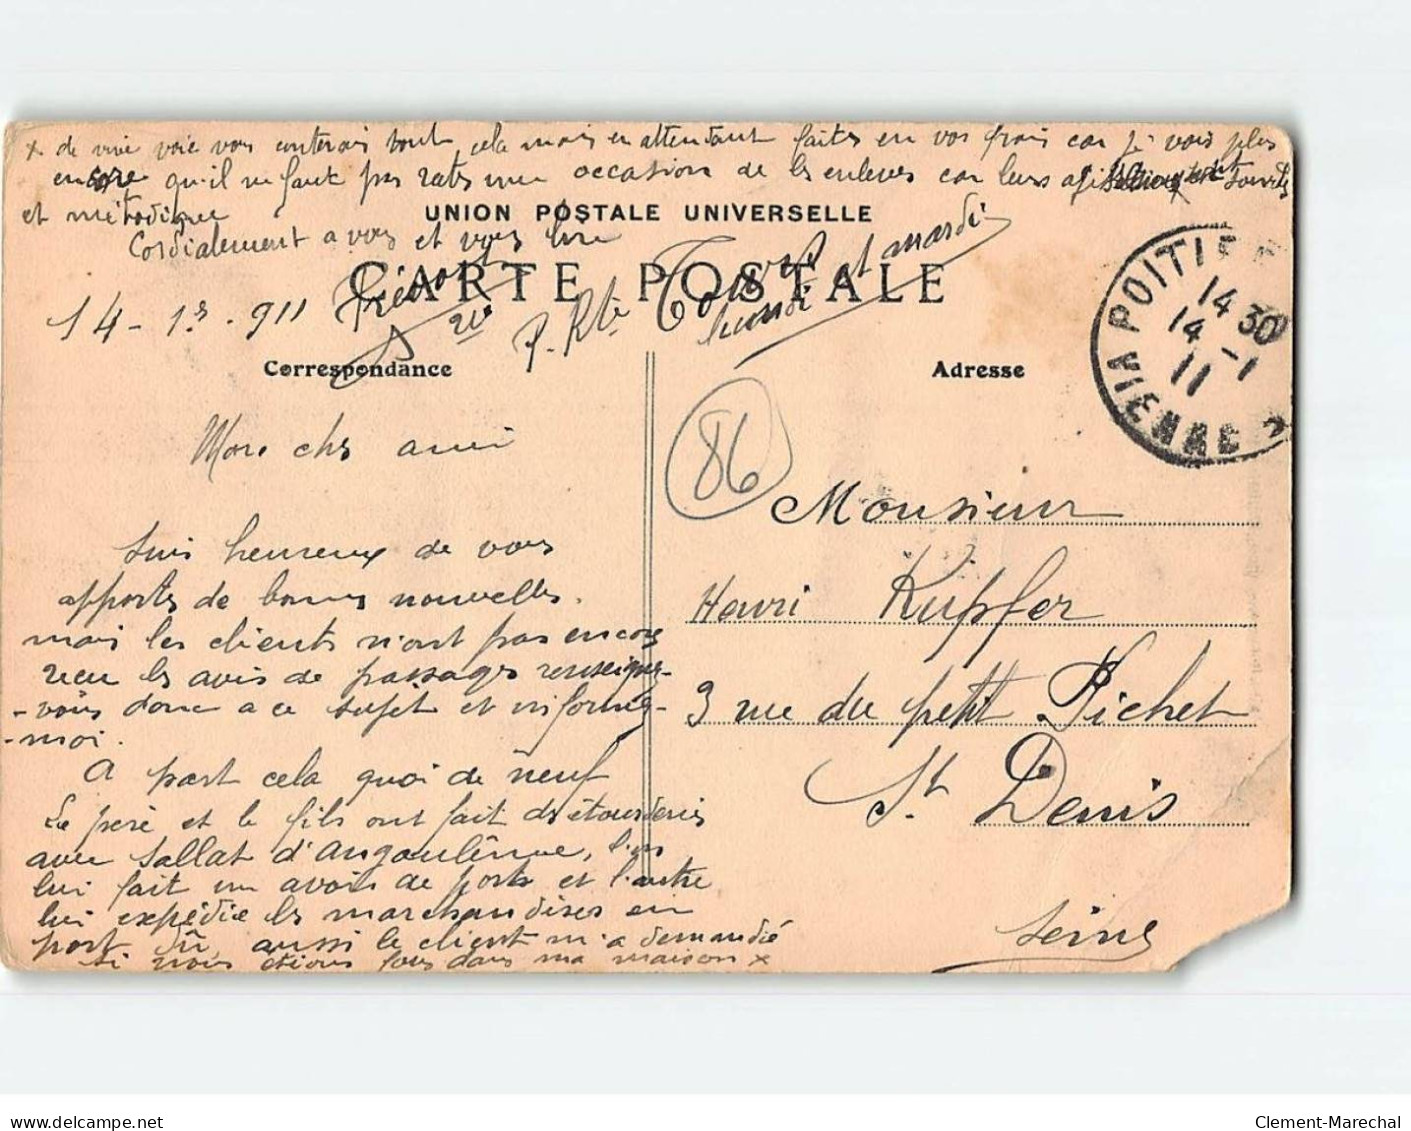 x de vive voix vous conterais tout cela mais en attendant faites en vos frais car je vois plus
encore qu'il ne faut pas rater une occasion de les enlever car leurs
et méthodique
UNION POSTALE UNIVERSELLE
Cordialement a vous et vous lire
CARTE POSTALE
14 - 1r. - 911
P. Rte Tours lundi et mardi
POITIERS
VIENNE
14 30
14 - 1
11
Correspondance
Adresse
86
Mon cher ami
Suis heureux de vous
apporter de bonnes nouvelles.
mais les clients n'ont pas encore
recu les avis de passages renseignez-
-vous donc a ce sujet et informez-
-moi.
A part cela quoi de neuf
Le père et le fils ont fait des étourderies
avec Sallat d'Angoulême, l'un
lui fait un avoir de port et l'autre
lui expédie les marchandises en
port dû, aussi le client m'a demandé
si nous étions fous dans ma maison x
Monsieur
Henri Kupfer
3 rue du petit Pichet
St Denis
Seine
www.delcampe.net
Clement-Marechal